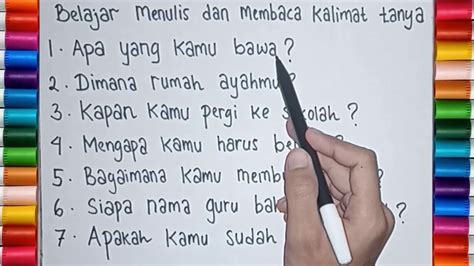 Belajar Menulis dan Membaca Kalimat tanya
1. Apa yang Kamu bawa?
2. Dimana rumah ayahmu ?
3. Kapan Kamu pergi ke sekolah ?
4. Mengapa Kamu harus ?
5. Bagaimana Kamu
6. Siapa nama guru ?
7. Apakah Kamu sudah ?